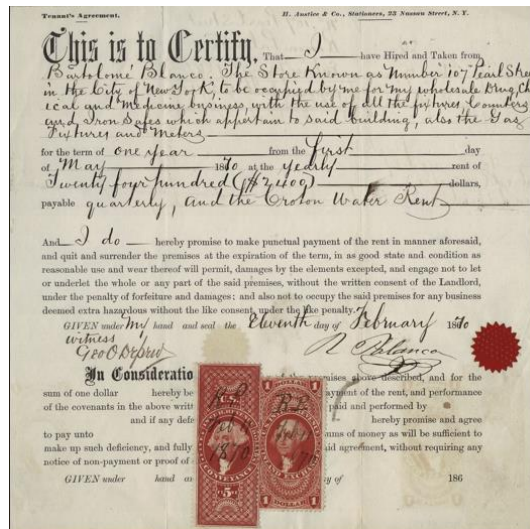 Tenant's Agreement. H. Anstice & Co., Stationers, 23 Nassau Street, N. Y.
This is to Certify, That I have Hired and Taken from
Bartolomé Blanco. The Store Known as Number 107 Pearl Street
in the City of New York, to be occupied by me for my wholesale Drug, Chem
ical and Medicine business, with the use of all the fixtures Counters
and Iron Safes which appertain to said building, also the Gas
Fixtures and Meters
for the term of one year from the first day
of May 1870 at the yearly rent of
Twenty four hundred ($2400) dollars,
payable quarterly, and the Croton Water Rent
And I do hereby promise to make punctual payment of the rent in manner aforesaid,
and quit and surrender the premises at the expiration of the term, in as good state and condition as
reasonable use and wear thereof will permit, damages by the elements excepted, and engage not to let
or underlet the whole or any part of the said premises, without the written consent of the Landlord,
under the penalty of forfeiture and damages; and also not to occupy the said premises for any business
deemed extra hazardous without the like consent, under the like penalty.
GIVEN under my hand and seal the Eleventh day of February 1870
witness
In Consideratio the premises above described, and for the
sum of one dollar hereby be payment of the rent, and performance
of the covenants in the above writt paid and performed by
and if any defa hereby promise and agree
to pay unto sums of money as will be sufficient to
make up such deficiency, and fully said agreement, without requiring any
notice of non-payment or proof of
GIVEN under hand an day of 186
U.S.
1870
CONVEYANCE
5
1
1